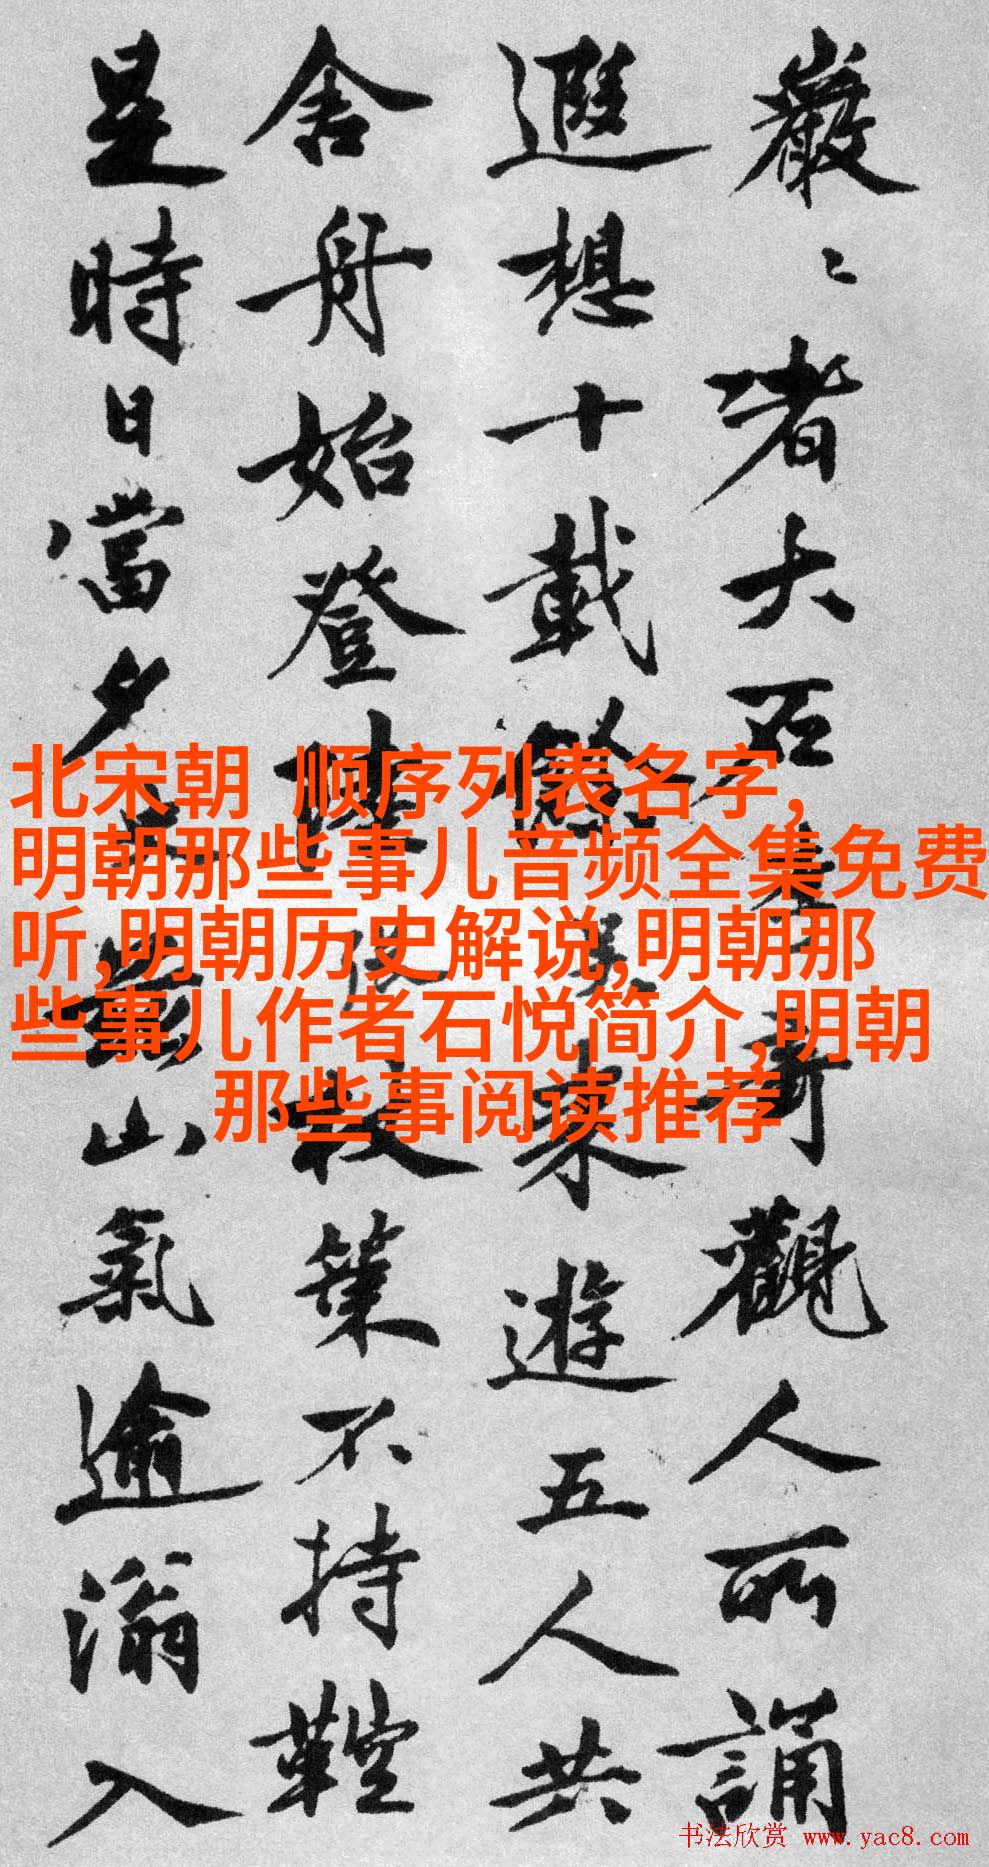 巖〻者大石奇觀人所誦
遐想十載餘來遊五人共
舍舟始登陸杖策不持鞚
是時日當夕山氣逾滃入
北宋朝 顺序列表名字,
明朝那些事儿音频全集免费
听,明朝历史解说,明朝那
些事儿作者石悦简介,明朝
那些事阅读推荐
书法欣赏 www.yac8.com